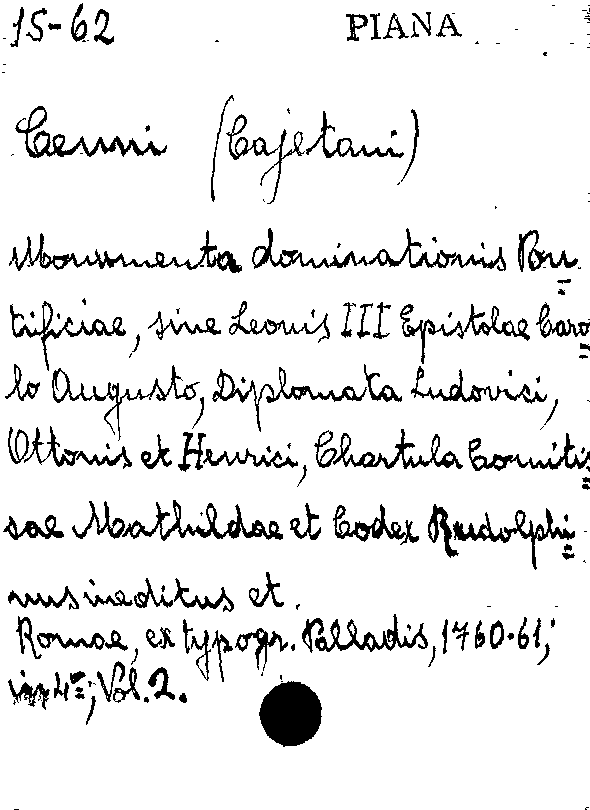 15-62 PIANA
Cenni (Cajetani)
Monumenta dominationis Pon=
tificiae, sive Leonis III Epistolae Caro=
lo Augusto, Diplomata Ludovici,
Ottonis et Henrici, Chartula Comitis=
sae Mathildae et Codex Rudolphi=
nus ineditus et.
Romae, ex typogr. Palladis, 1760-61;
in 4º; Vol. 2.